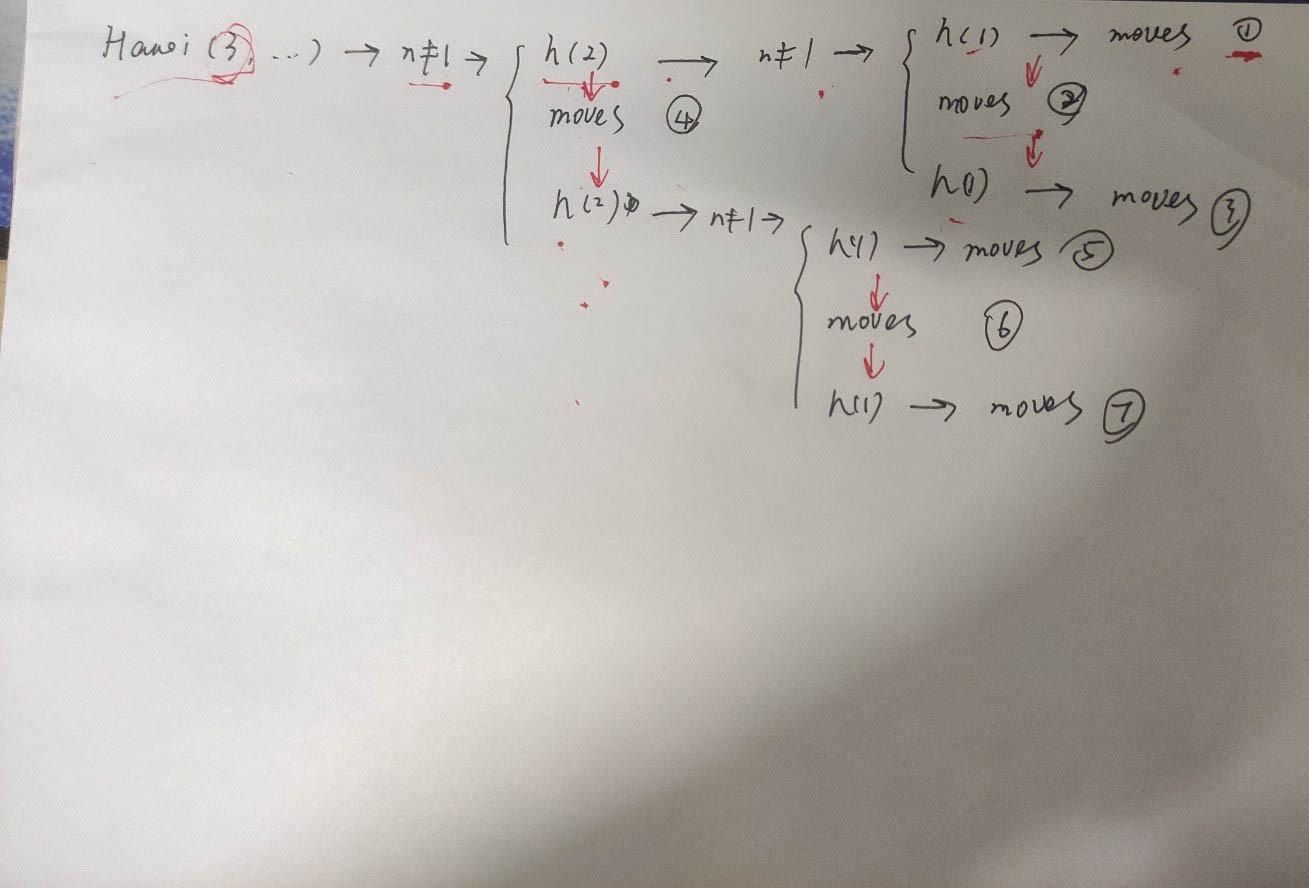 Hanoi (3, ...) → n≠1 → { h(2) → n≠1 → { h(1) → moves ①
moves ④ moves ②
h(1) → moves ③
h(2) → n≠1 → { h(1) → moves ⑤
moves ⑥
h(1) → moves ⑦